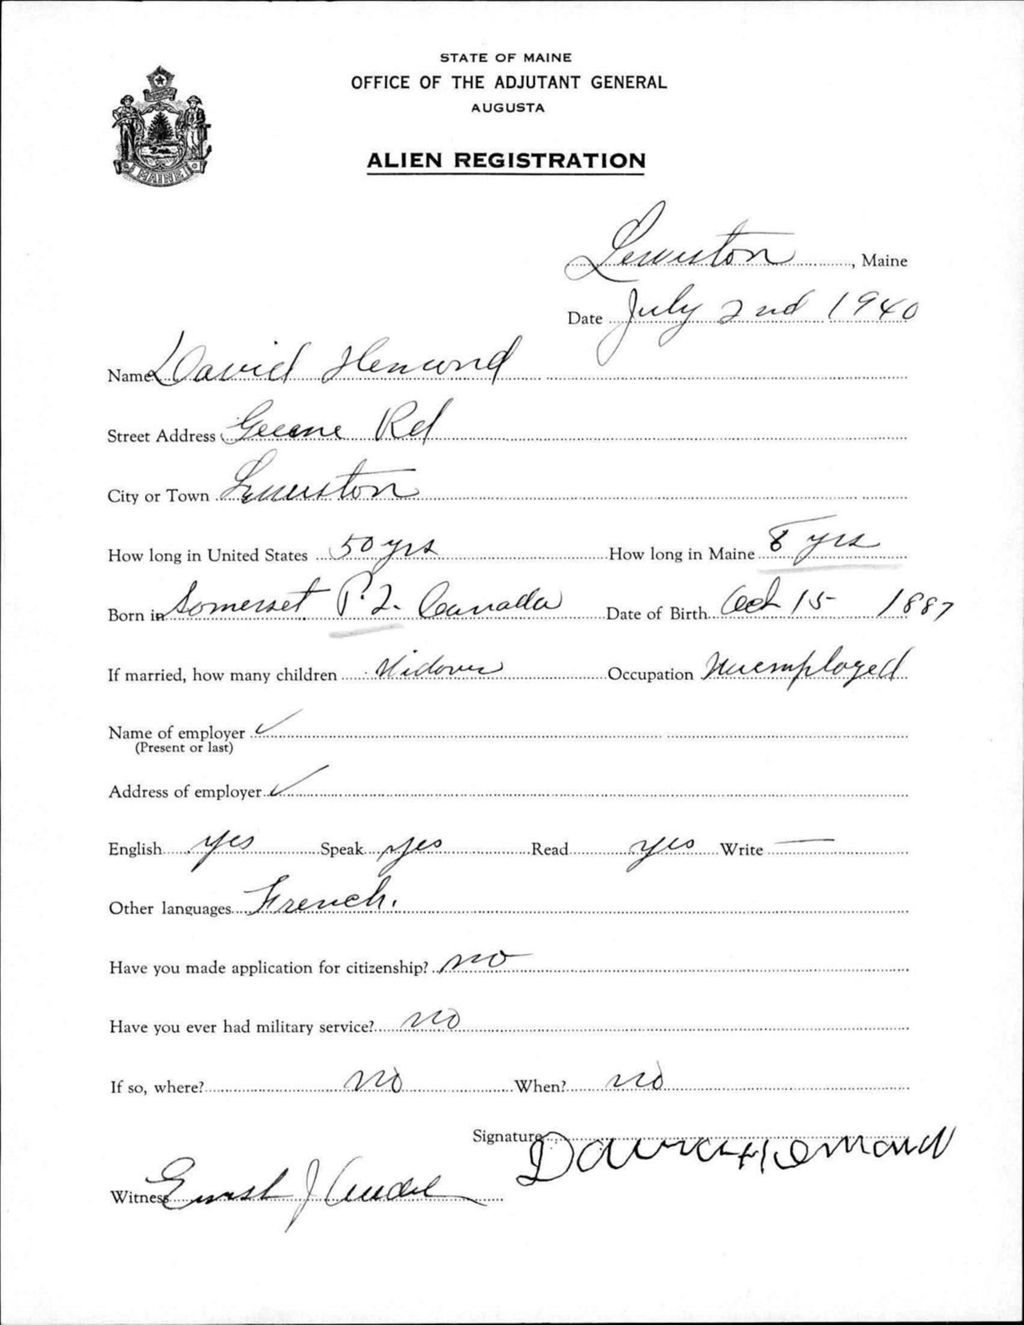 STATE OF MAINE
OFFICE OF THE ADJUTANT GENERAL
AUGUSTA
ALIEN REGISTRATION
MAINE
Lewiston, Maine
Date July 2nd 1940
Name David Hemond
Street Address Greene Rd
City or Town Lewiston
How long in United States 50 yrs How long in Maine 8 yrs
Born in Somerset P.Q. Canada Date of Birth Oct 15 1887
If married, how many children Widower Occupation Unemployed
Name of employer ✓
(Present or last)
Address of employer ✓
English yes Speak yes Read yes Write —
Other languages French.
Have you made application for citizenship? no
Have you ever had military service? no
If so, where? no When? no
Signature David Hemond
Witness Ernest J